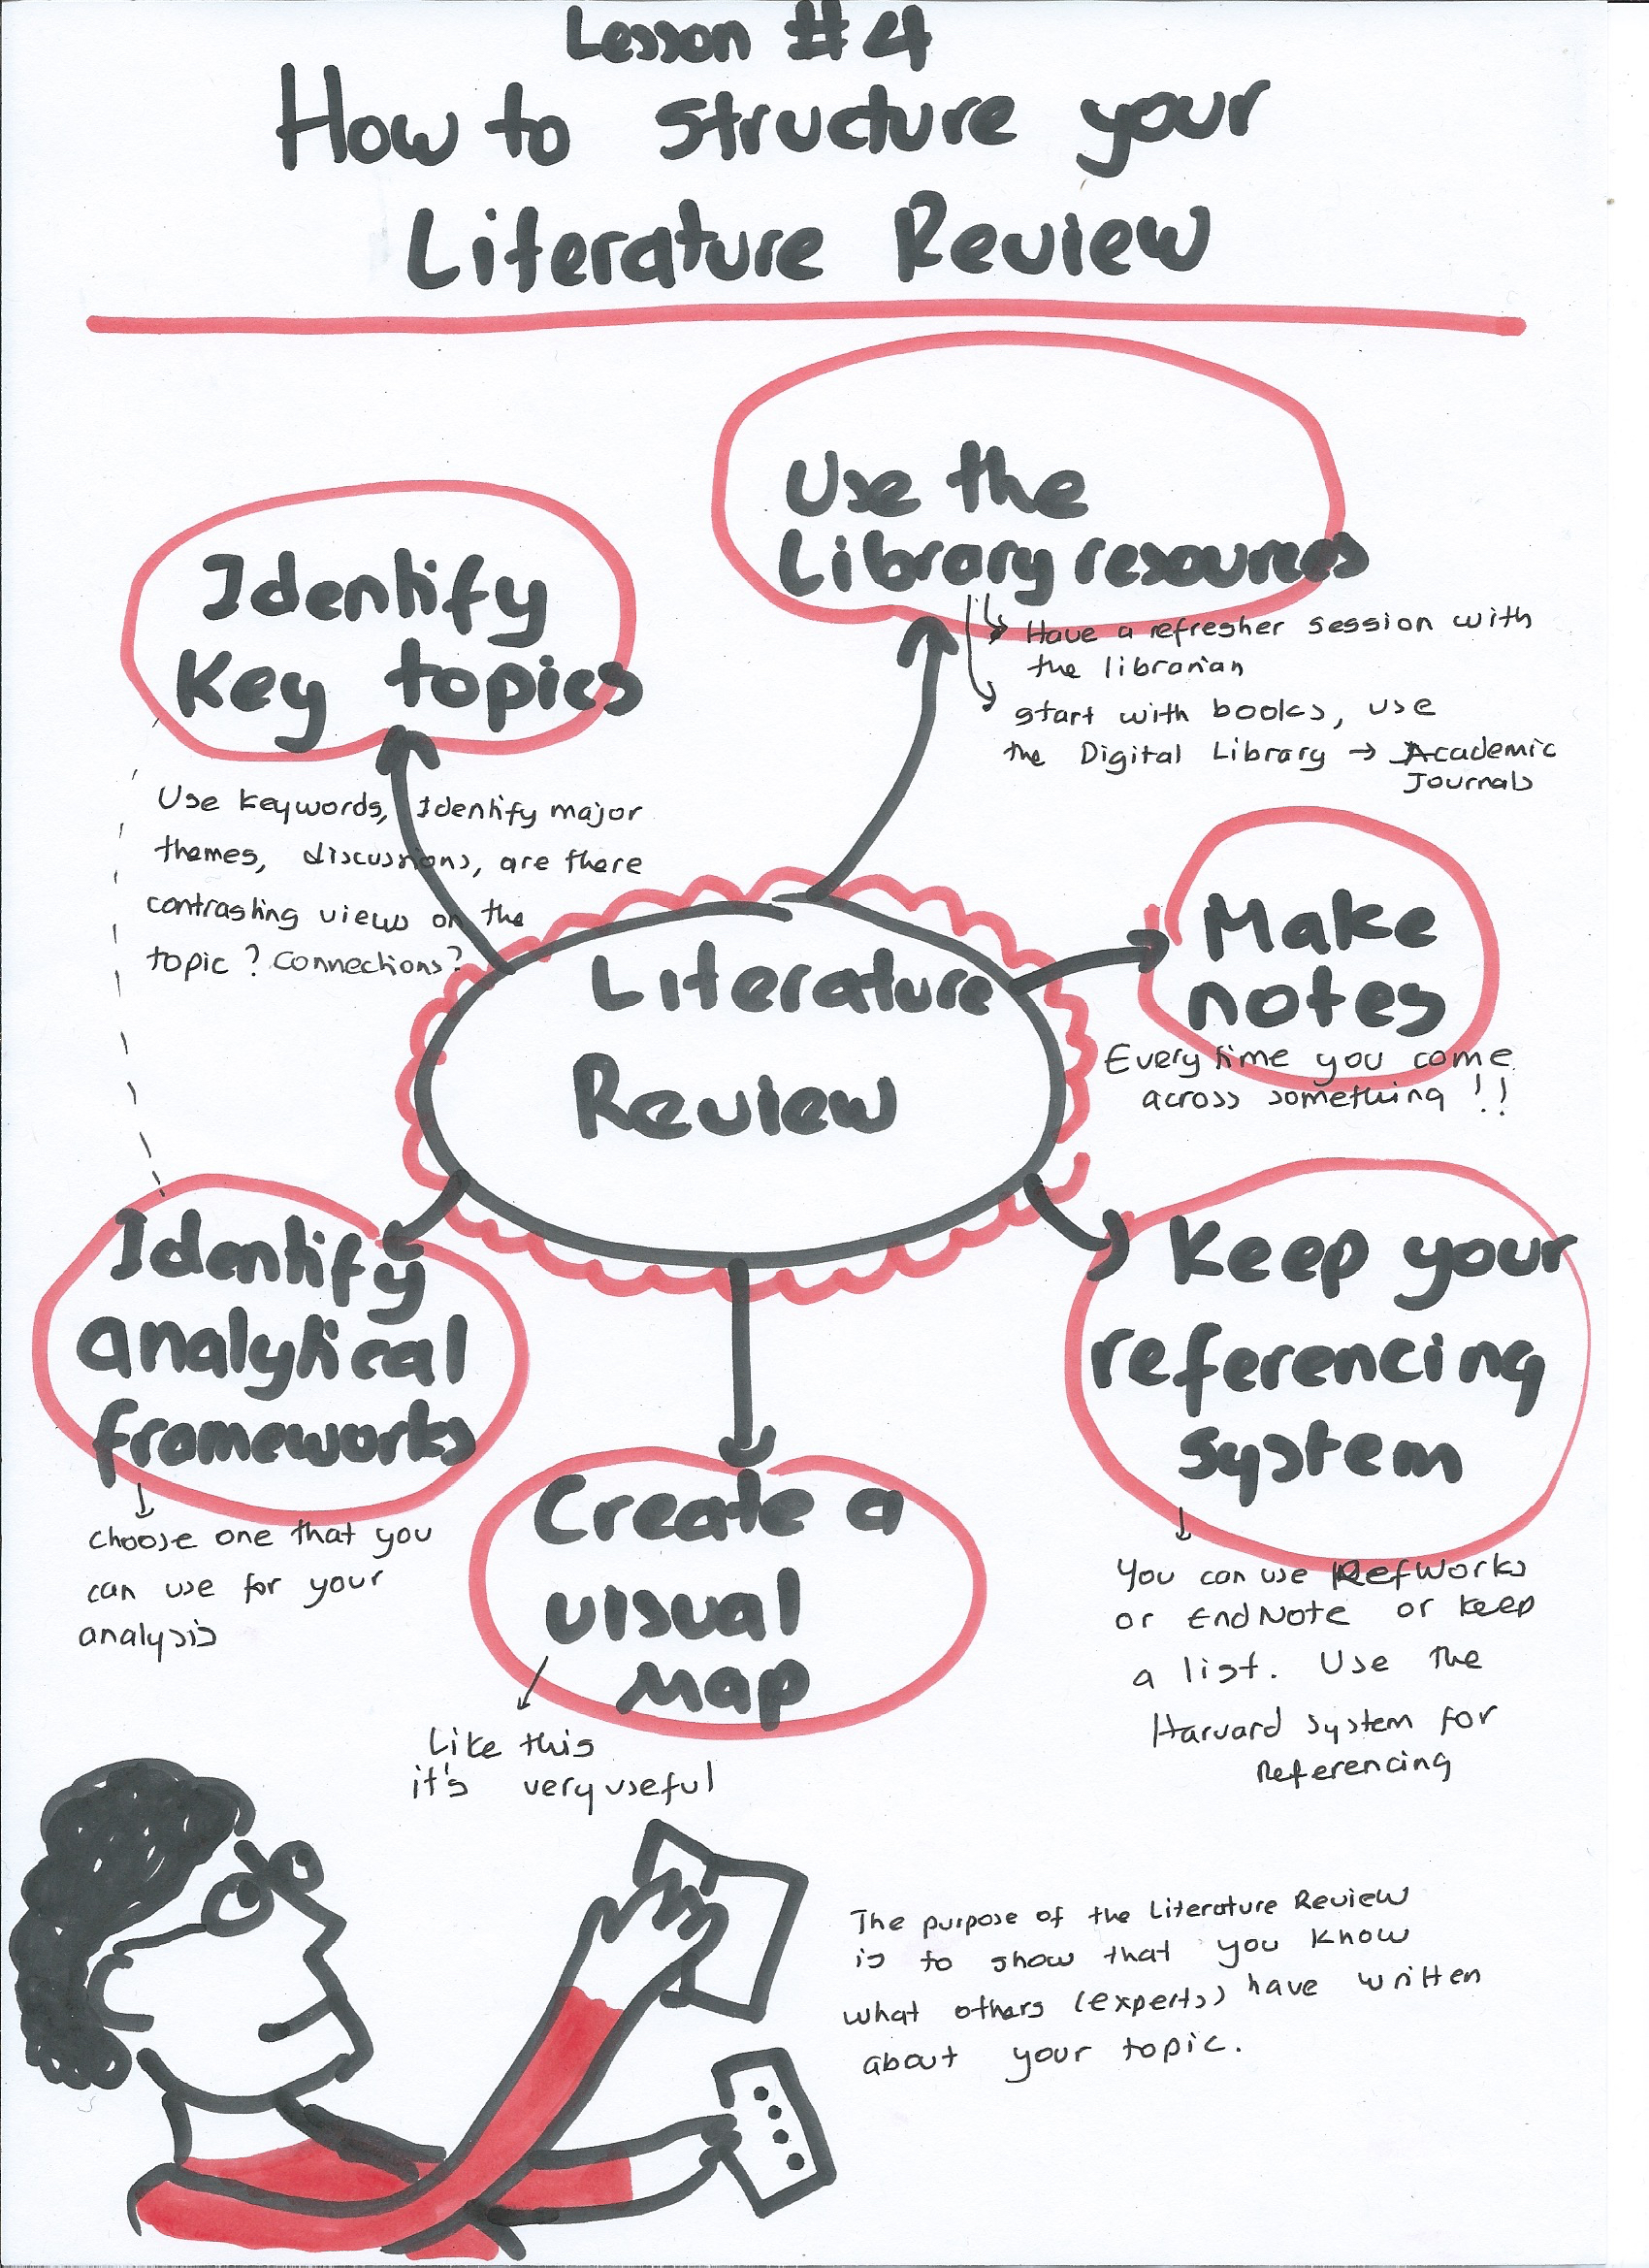 Lesson #4
How to structure your
Literature Review
Use the
Library resources
Have a refresher session with
the librarian
start with books, use
the Digital Library → Academic
Journals
Identify
Key topics
Use keywords, Identify major
themes, discussions, are there
contrasting views on the
topic? Connections?
Make
notes
Every time you come
across something!!
Literature
Review
Identify
analytical
frameworks
choose one that you
can use for your
analysis
Create a
visual
Map
Like this
it's very useful
Keep your
referencing
system
You can use RefWorks
or EndNote or keep
a list. Use the
Harvard System for
Referencing
The purpose of the Literature Review
is to show that you know
what others (experts) have written
about your topic.